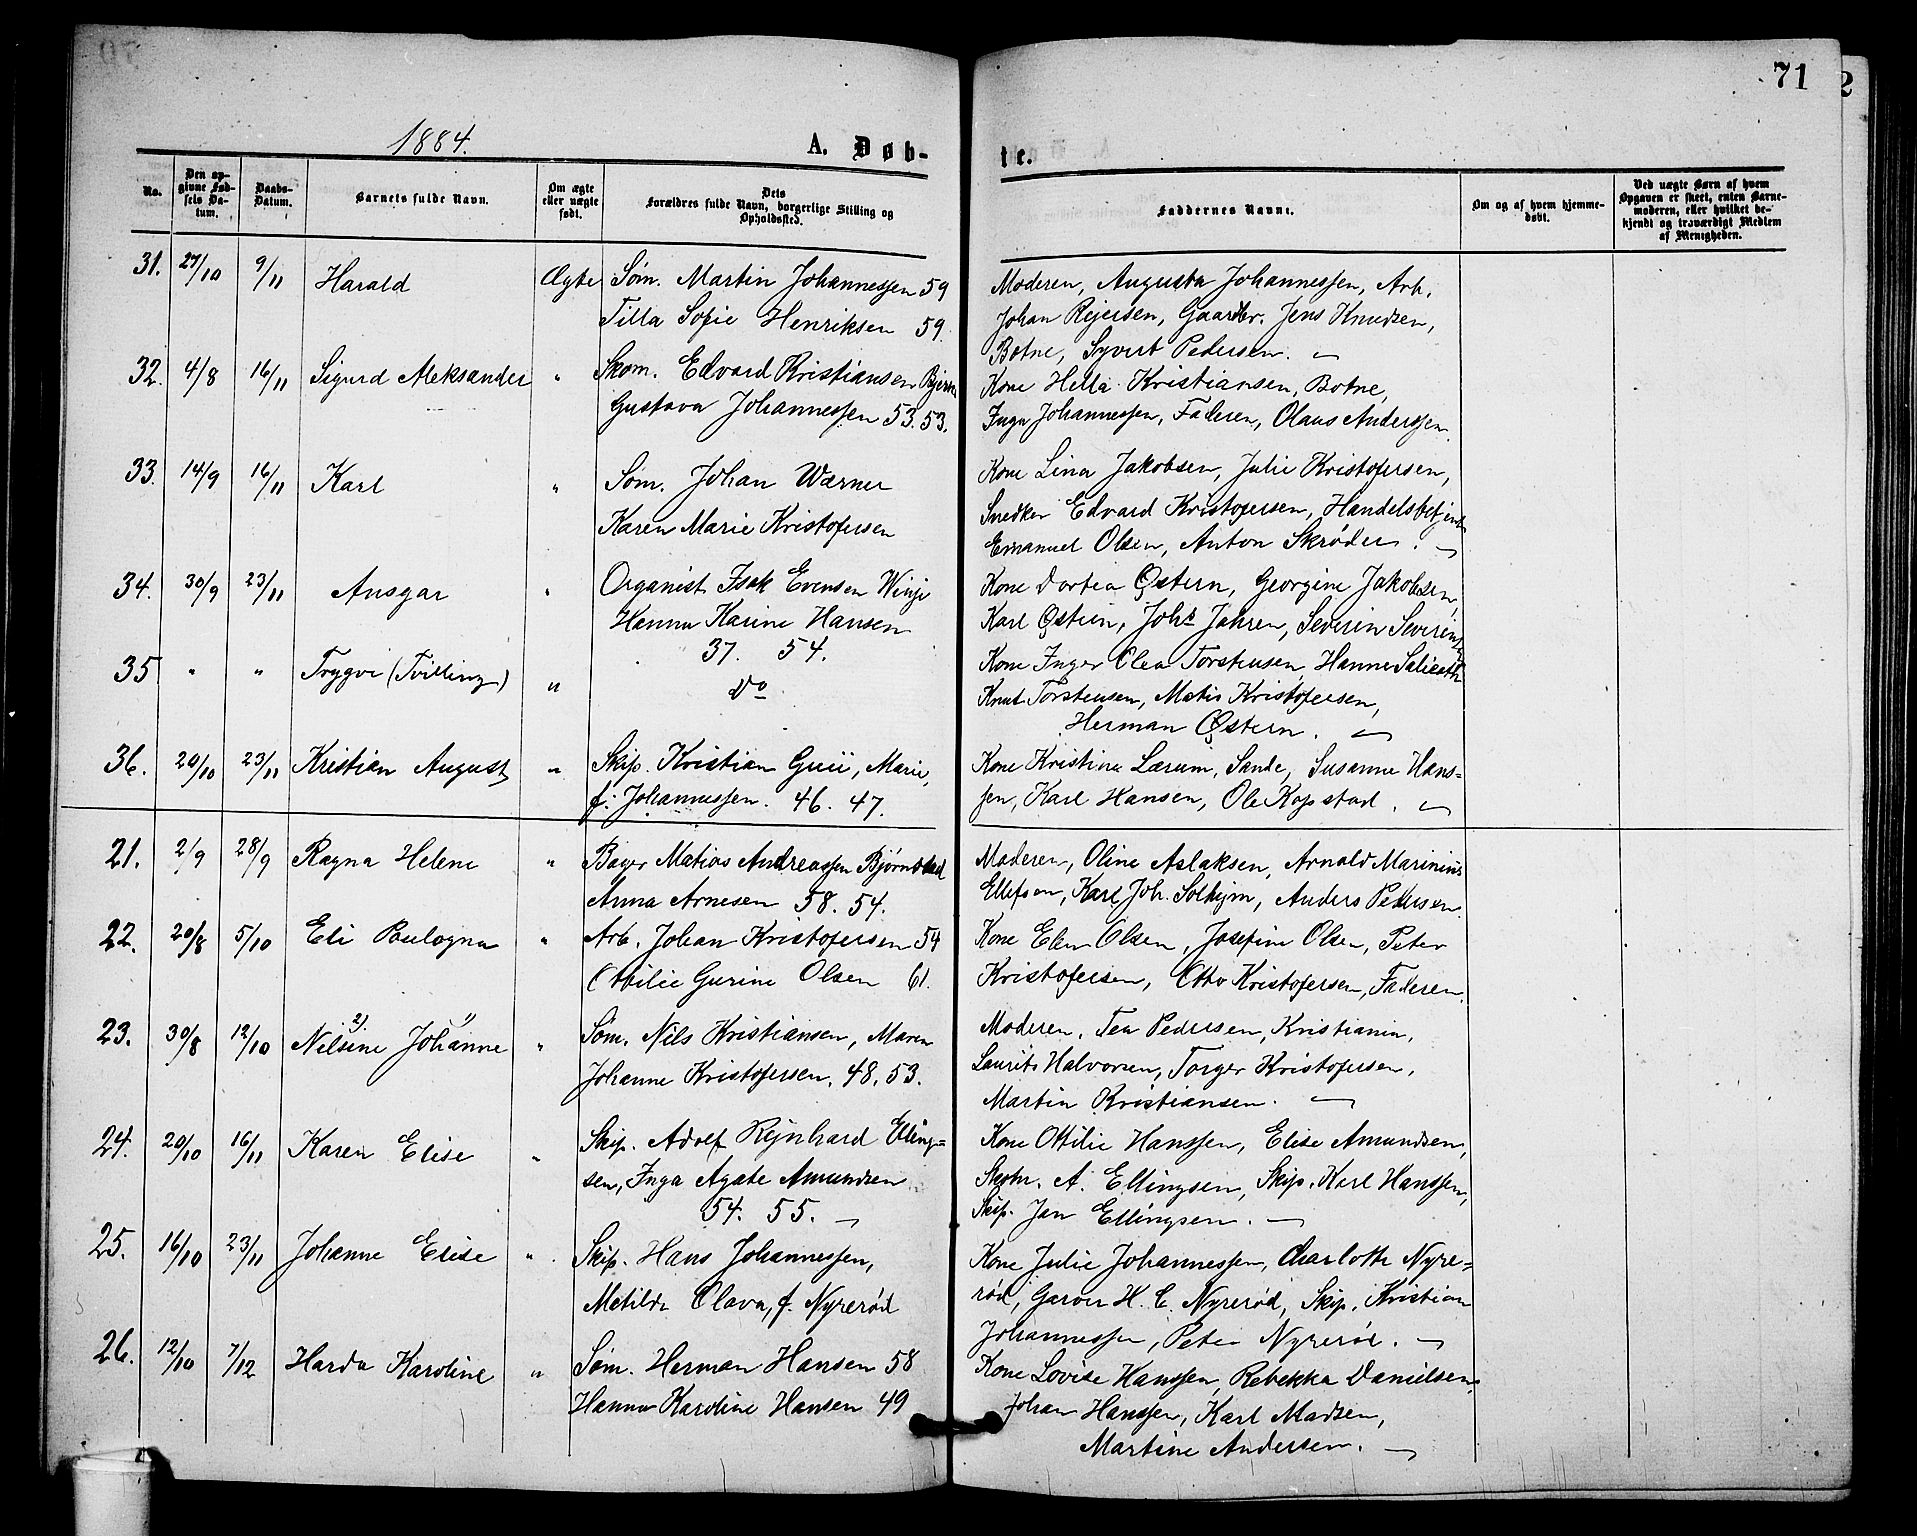 71
2
1884.
A. Døb-
te.
No.
Den op-
givne Fød-
sels Da-
tum.
Daabs-
Datum.
Barnets fulde Navn.
Om ægte
eller uægte
født.
Dets
Forældres fulde Navn, borgerlige Stilling og
Opholdssted.
Faddernes Navne.
Om og af hvem hjemme-
døbt.
Ved uægte Børn af hvem
Opgaven er skeet, enten Barne-
moderen, eller hvilket be-
kjendt og troværdigt Medlem
af Menigheden.
31. 27/10 9/11 Harald Ægte Søm. Martin Johannessen 59
Tilla Sofie Henriksen 59.
Moderen, Augusta Johannessen, Arb.
Johan Rejersen, Gaardbr. Jens Knudsen,
Botne, Syvert Pedersen.
32. 4/8 16/11 Sigurd Aleksander " Skom. Edvard Kristiansen
Gustava Johannessen 53. 53.
Kone Hella Kristiansen, Botne,
Inga Johannessen, Faderen, Olaus Anderssen.
33. 14/9 16/11 Karl " Søm. Johan Wærner
Karen Marie Kristofersen
Kone Lina Jakobsen, Julie Kristofersen,
Snedker Edvard Kristofersen, Handelsbetjent
Emanuel Olsen, Anton Skrøder.
34. 30/9 23/11 Ansgar " Organist Isak Evensen Winje
Hanna Karine Hansen
37. 54.
Kone Dortea Østern, Georgine Jakobsen,
Karl Østern, Johs Jahren, Severin
35 " " Trygve (Tvilling) " Do
Kone Inger Olea Torstensen, Hanne
Knut Torstensen, Matis Kristofersen,
Herman Østern.
36. 20/10 23/11 Kristian August " Skip. Kristian Guii, Marie,
f: Johannessen. 46. 47.
Kone Kristine Lærum, Sande, Susanne Hans-
sen, Karl Hansen, Ole Kopstad.
21. 2/9 28/9 Ragna Helene " Bager Matias Andreassen Bjørnstad
Anna Arnesen 58. 54.
Moderen, Oline Aslaksen, Arnold Marinius
Ellefsen, Karl Joh. Solhejm, Anders Pedersen.
22. 20/8 5/10 Eli Paulogna " Arb. Johan Kristofersen 54
Ottilie Gurine Olsen 61.
Kone Elen Olsen, Josefine Olsen, Peter
Kristofersen, Otto Kristofersen, Faderen.
23. 30/8 12/10 Nilsine Johanne " Søm. Nils Kristiansen, Maren
Johanne Kristofersen. 48. 53.
Moderen, Tea Pedersen, Kristiania,
Laurits Halvorsen, Torger Kristofersen,
Martin Kristiansen.
24. 20/10 16/11 Karen Elise " Skip. Adolf Rejnhard Elling-
sen, Inga Agate Amundsen
54. 55.
Kone Ottilie Hanssen, Elise Amundsen,
A. Ellingsen, Skip. Karl Hanssen,
Skip. Jan Ellingsen.
25. 16/10 23/11 Johanne Elise " Skip. Hans Johannessen,
Metilde Olava, f. Nyrerød
Kone Julie Johannessen, Charlotte Nyre-
rød, Garver H. C. Nyrerød, Skip. Kristian
Johannessen, Peter Nyrerød.
26. 12/10 7/12 Harda Karoline " Søm. Herman Hansen 58
Hanna Karoline Hansen 49
Kone Lovise Hanssen, Rebekka Danielsen,
Johan Hanssen, Karl Madsen,
Martine Andersen.